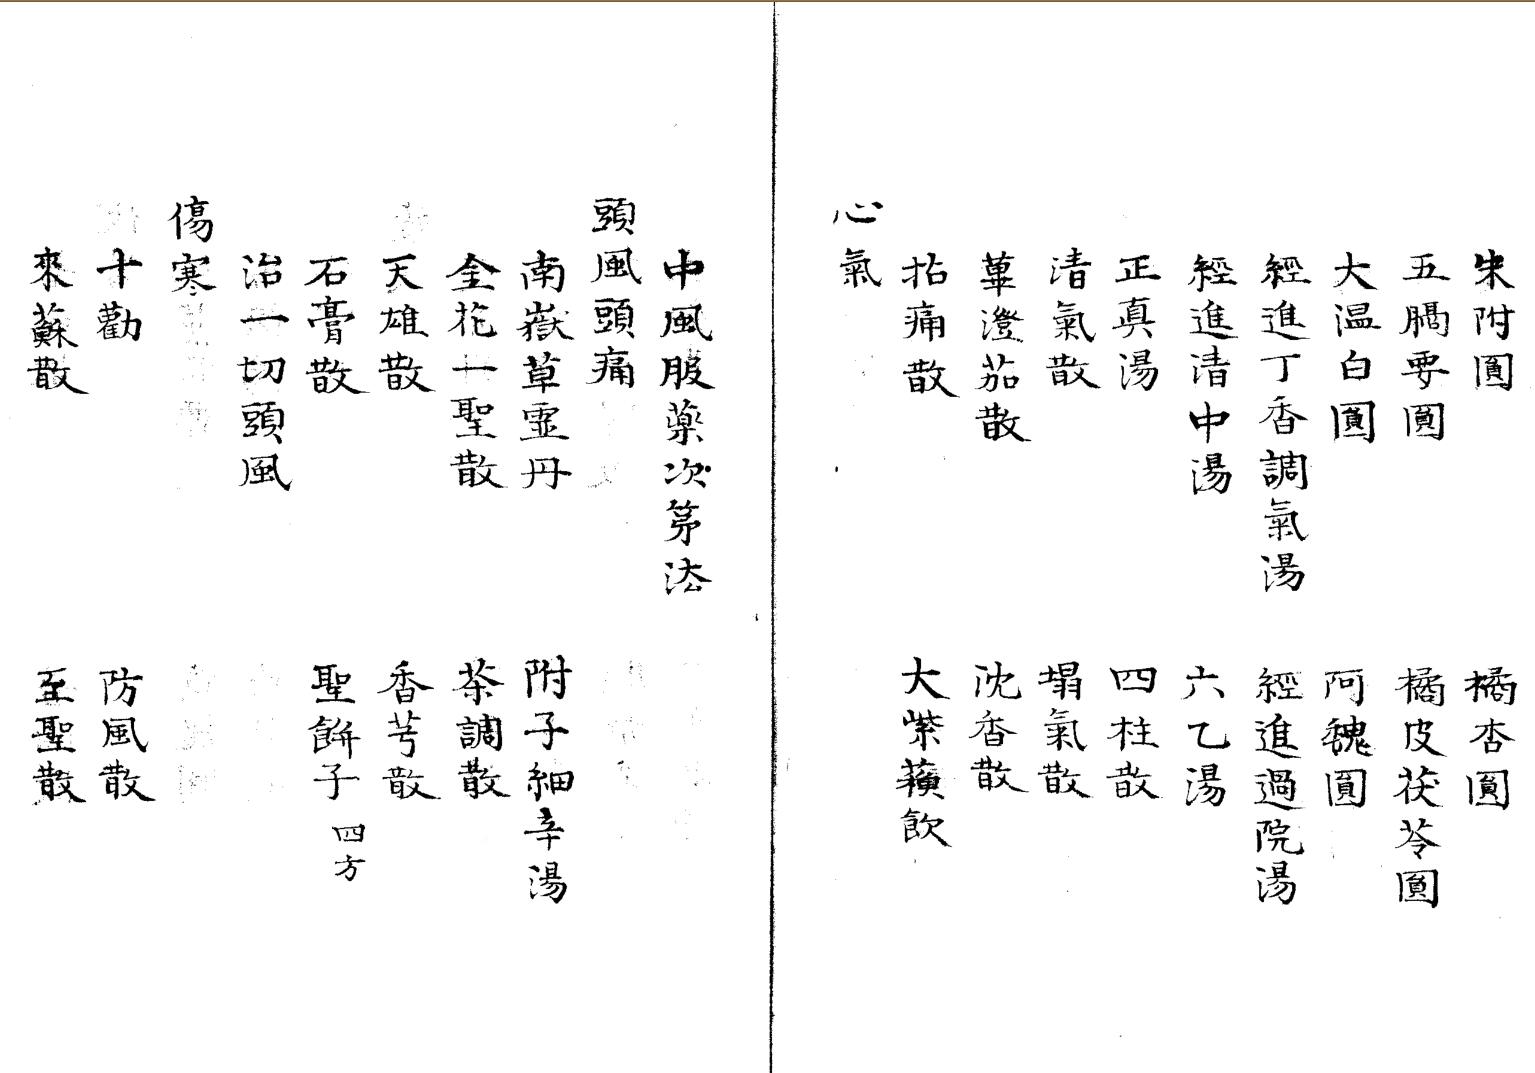 朱附圓　橘杏圓
五膈要圓　橘皮茯苓圓
大温白圓　阿魏圓
經進丁香調氣湯　經進過院湯
經進清中湯　六乙湯
正真湯　四柱散
清氣散　塌氣散
蓽澄茄散　沈香散
拈痛散　大紫蘓飲
心氣
中風服藥次第法
頭風頭痛
南嶽草霊丹　附子細辛湯
全花一聖散　茶調散
天雄散　香芎散
石膏散　聖餅子 四方
治一切頭風
傷寒
十勸　防風散
來蘇散　至聖散